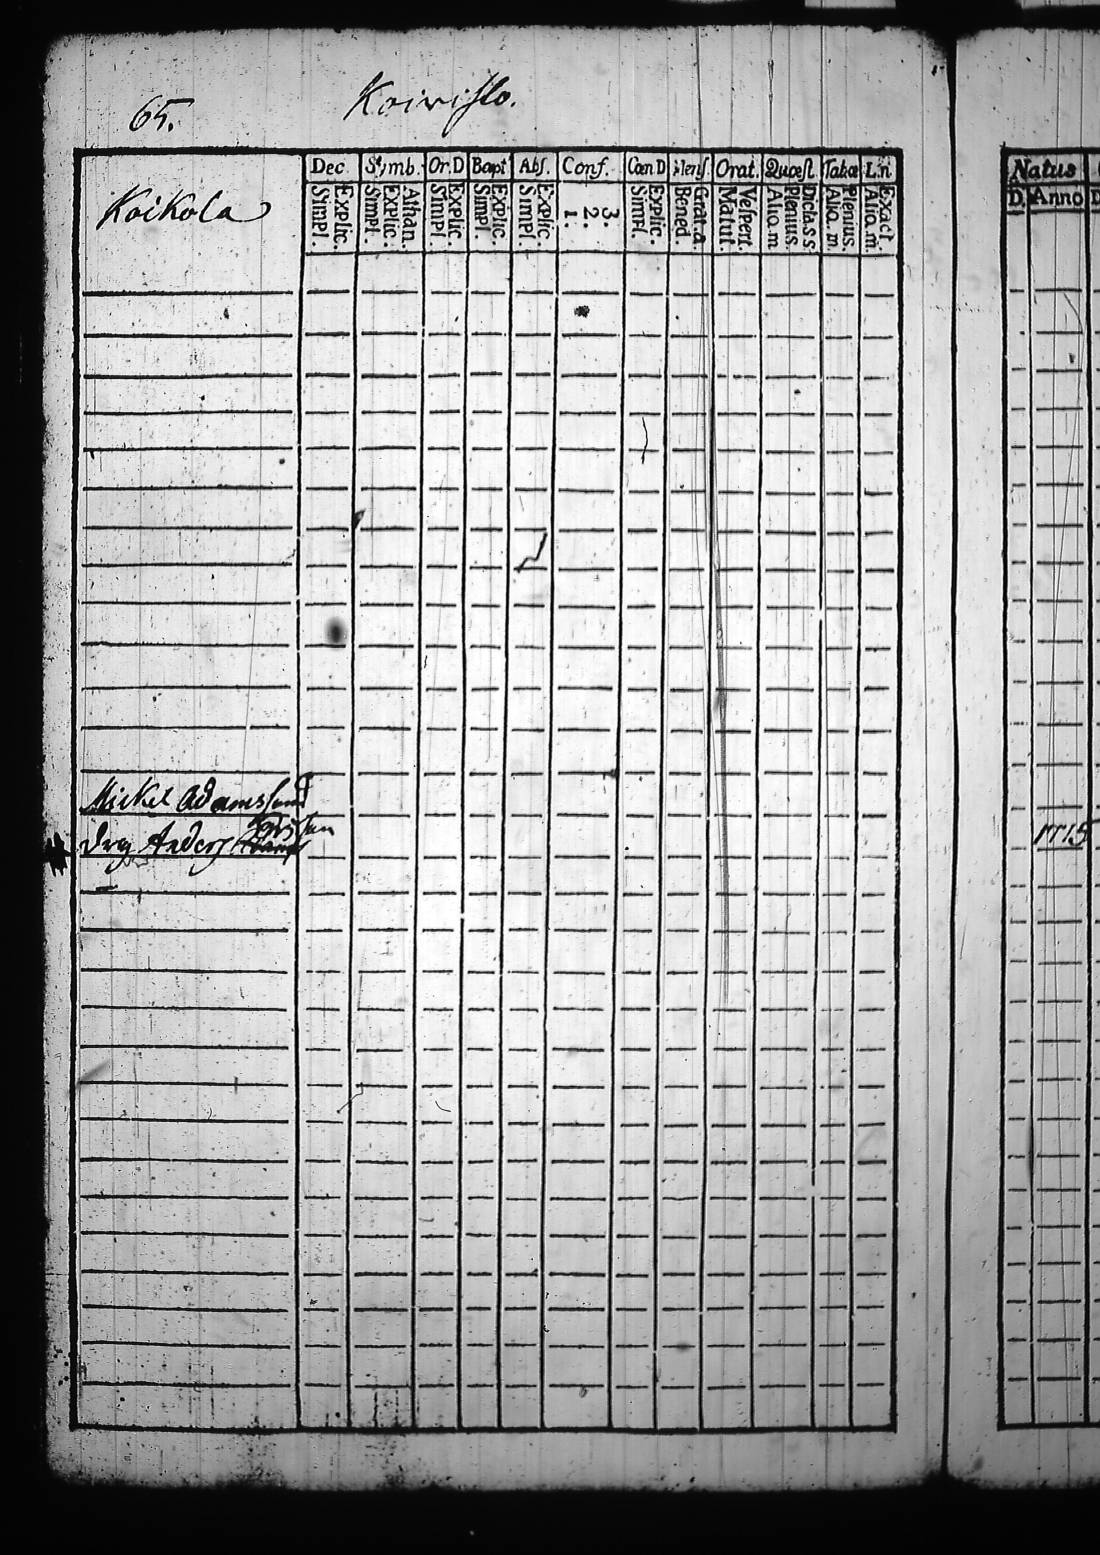 65. Koivisto.
Dec Symb. Or.D Bapt Abs. Conf. Cœn D Mens. Orat. Quæst Tabæ L.n
Koikola
Simpl. Explic. Simpl. Explic: Athan. Simpl. Explic. Simpl. Explic. Simpl. Explic. 1. 2. 3. Simpl. Explic. Bened. Grat.a Matut. Vespert Alio.m Plenius. Dicta.ss Alio.m Plenius. Alio.m. Exact
Natus
D. Anno D
Mickel Adamssund
Drg Anders
1715